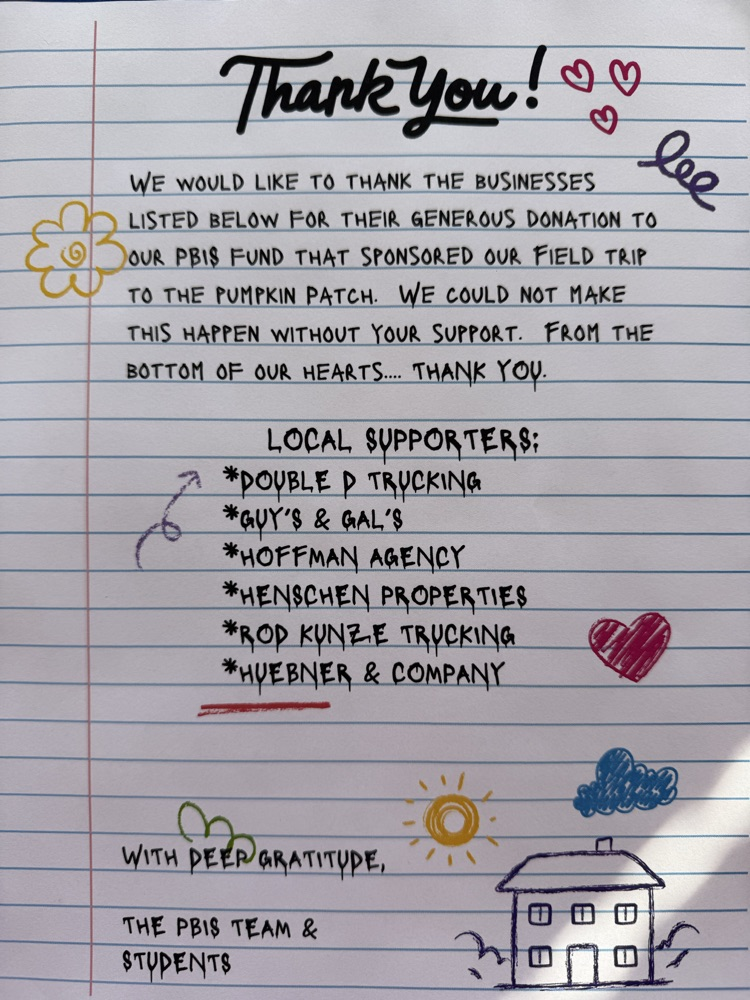 Thank You!
WE WOULD LIKE TO THANK THE BUSINESSES
LISTED BELOW FOR THEIR GENEROUS DONATION TO
OUR PBIS FUND THAT SPONSORED OUR FIELD TRIP
TO THE PUMPKIN PATCH. WE COULD NOT MAKE
THIS HAPPEN WITHOUT YOUR SUPPORT. FROM THE
BOTTOM OF OUR HEARTS.... THANK YOU.
LOCAL SUPPORTERS:
*DOUBLE D TRUCKING
*GUY'S & GAL'S
*HOFFMAN AGENCY
*HENSCHEN PROPERTIES
*ROD KUNZE TRUCKING
*HUEBNER & COMPANY
WITH DEEP GRATITUDE,
THE PBIS TEAM &
STUDENTS